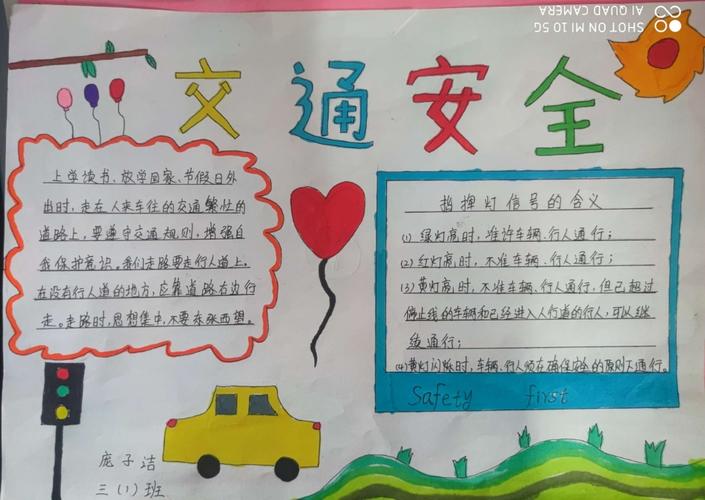 SHOT ON MI 10 5G
AI QUAD CAMERA
交通安全
上学读书、放学回家、节假日外
出时,走在人来车往的交通繁忙的
道路上,要遵守交通规则,增强自
我保护意识。我们走路要走行人道上。
在没有行人道的地方,应靠道路右边行
走。走路时,思想集中,不要东张西望。
指挥灯信号的含义
(1) 绿灯亮时,准许车辆、行人通行;
(2) 红灯亮时,不准车辆、行人通行;
(3) 黄灯亮时,不准车辆、行人通行,但已超过
停止线的车辆和已经进入人行道的行人,可以继
续通行;
(4) 黄灯闪烁时,车辆、行人须在确保安全的原则下通行。
Safety first
庞子洁
三(1)班